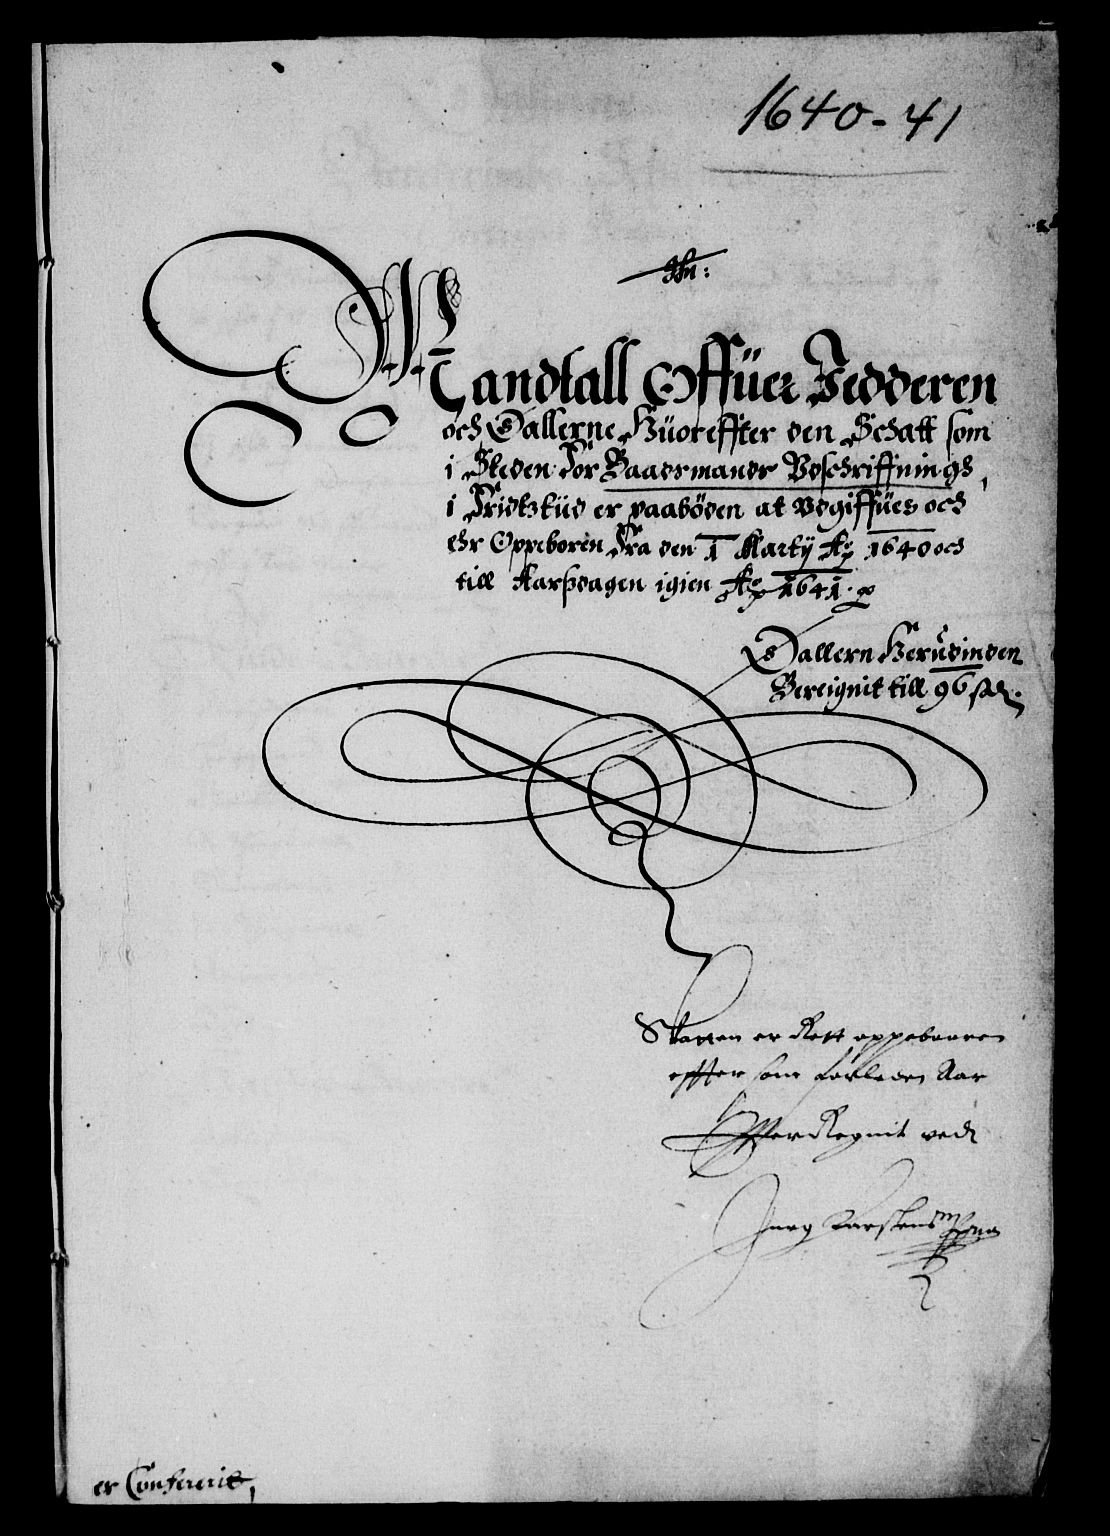 1640-41
Mandtall Offuer Jedderen
och Dallerne Huoreffter den Schatt som
i Steden for Baadsmands Vdschriffnings,
i Fridtztiid er paaböden at Vdgiffues och
ehr Oppeboren Fra den 1 Martÿ Ao 1640 och
till Aarsdagen igien Ao 1641.
Dallern Herudinden
Bereignit till 96 sk.
Skatten er Rett oppebaaren
effter som forleden Aar
Offuer Regnit ved
er Confererit,